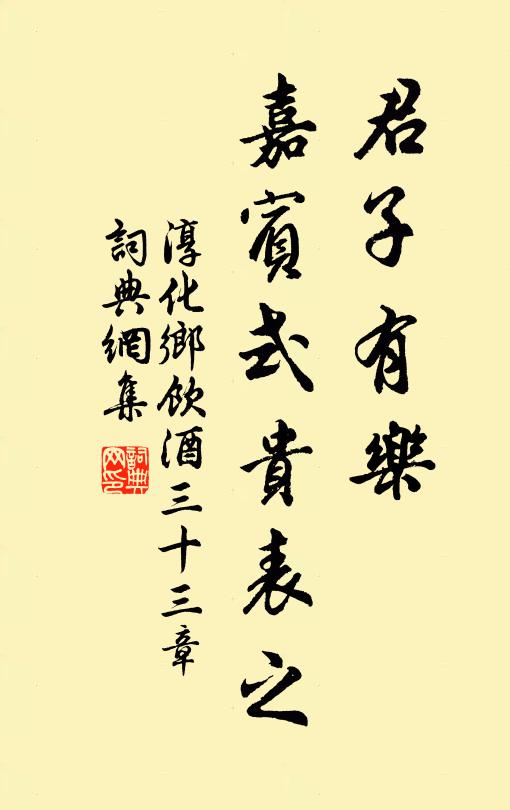 君子有樂
嘉賓式貴表之
淳化鄉飲酒三十三章
詞典網集
詞典网印